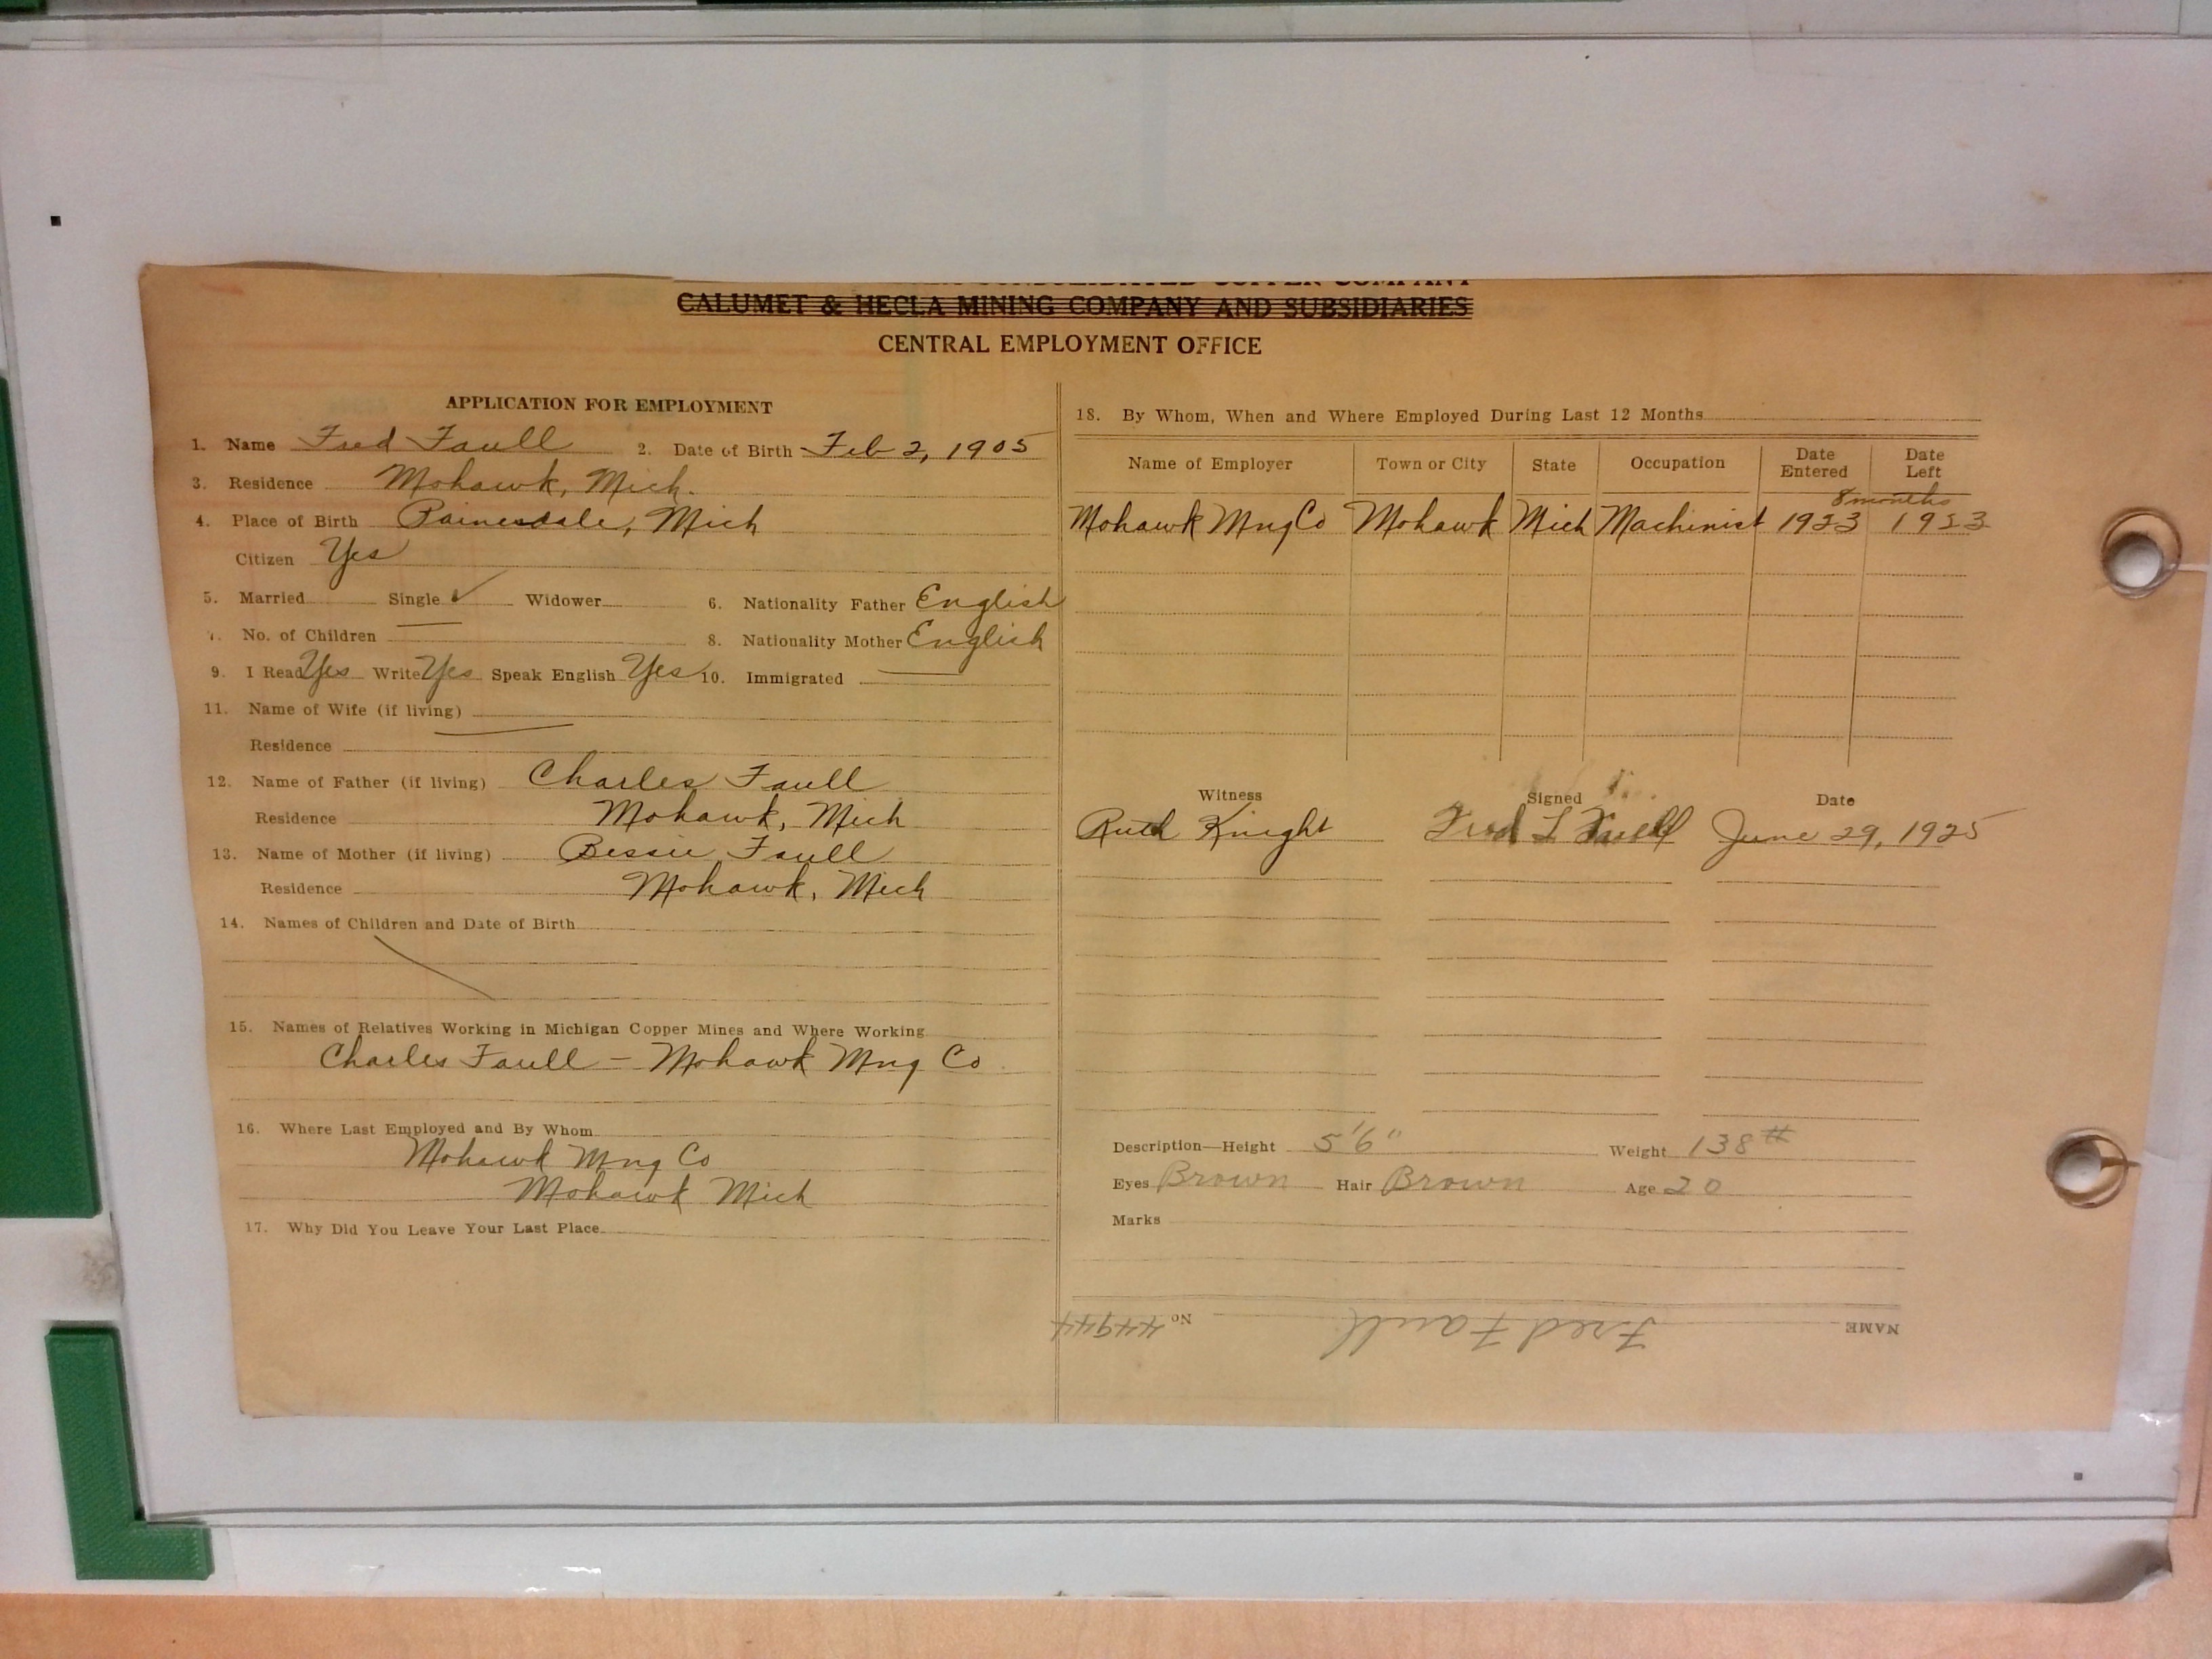 CONSOLIDATED COPPER COMPANY
CALUMET & HECLA MINING COMPANY AND SUBSIDIARIES
CENTRAL EMPLOYMENT OFFICE
APPLICATION FOR EMPLOYMENT
1. Name Fred Faull 2. Date of Birth Feb 2, 1905
3. Residence Mohawk, Mich.
4. Place of Birth Painesdale, Mich
Citizen Yes
5. Married Single ✓ Widower 6. Nationality Father English
7. No. of Children 8. Nationality Mother English
9. I Read Yes Write Yes Speak English Yes 10. Immigrated
11. Name of Wife (if living)
Residence
12. Name of Father (if living) Charles Faull
Residence Mohawk, Mich
13. Name of Mother (if living) Bessie Faull
Residence Mohawk, Mich
14. Names of Children and Date of Birth
15. Names of Relatives Working in Michigan Copper Mines and Where Working
Charles Faull - Mohawk Mng Co
16. Where Last Employed and By Whom
Mohawk Mng Co
Mohawk Mich
17. Why Did You Leave Your Last Place
18. By Whom, When and Where Employed During Last 12 Months
Name of Employer Town or City State Occupation Date Entered Date Left
8 months
Mohawk Mng Co Mohawk Mich Machinist 1923 1923
Witness Signed Date
Ruth Knight Fred L Faull June 29, 1925
Description—Height 5'6" Weight 138 #
Eyes Brown Hair Brown Age 20
Marks
NAME Fred Faull No. 44944